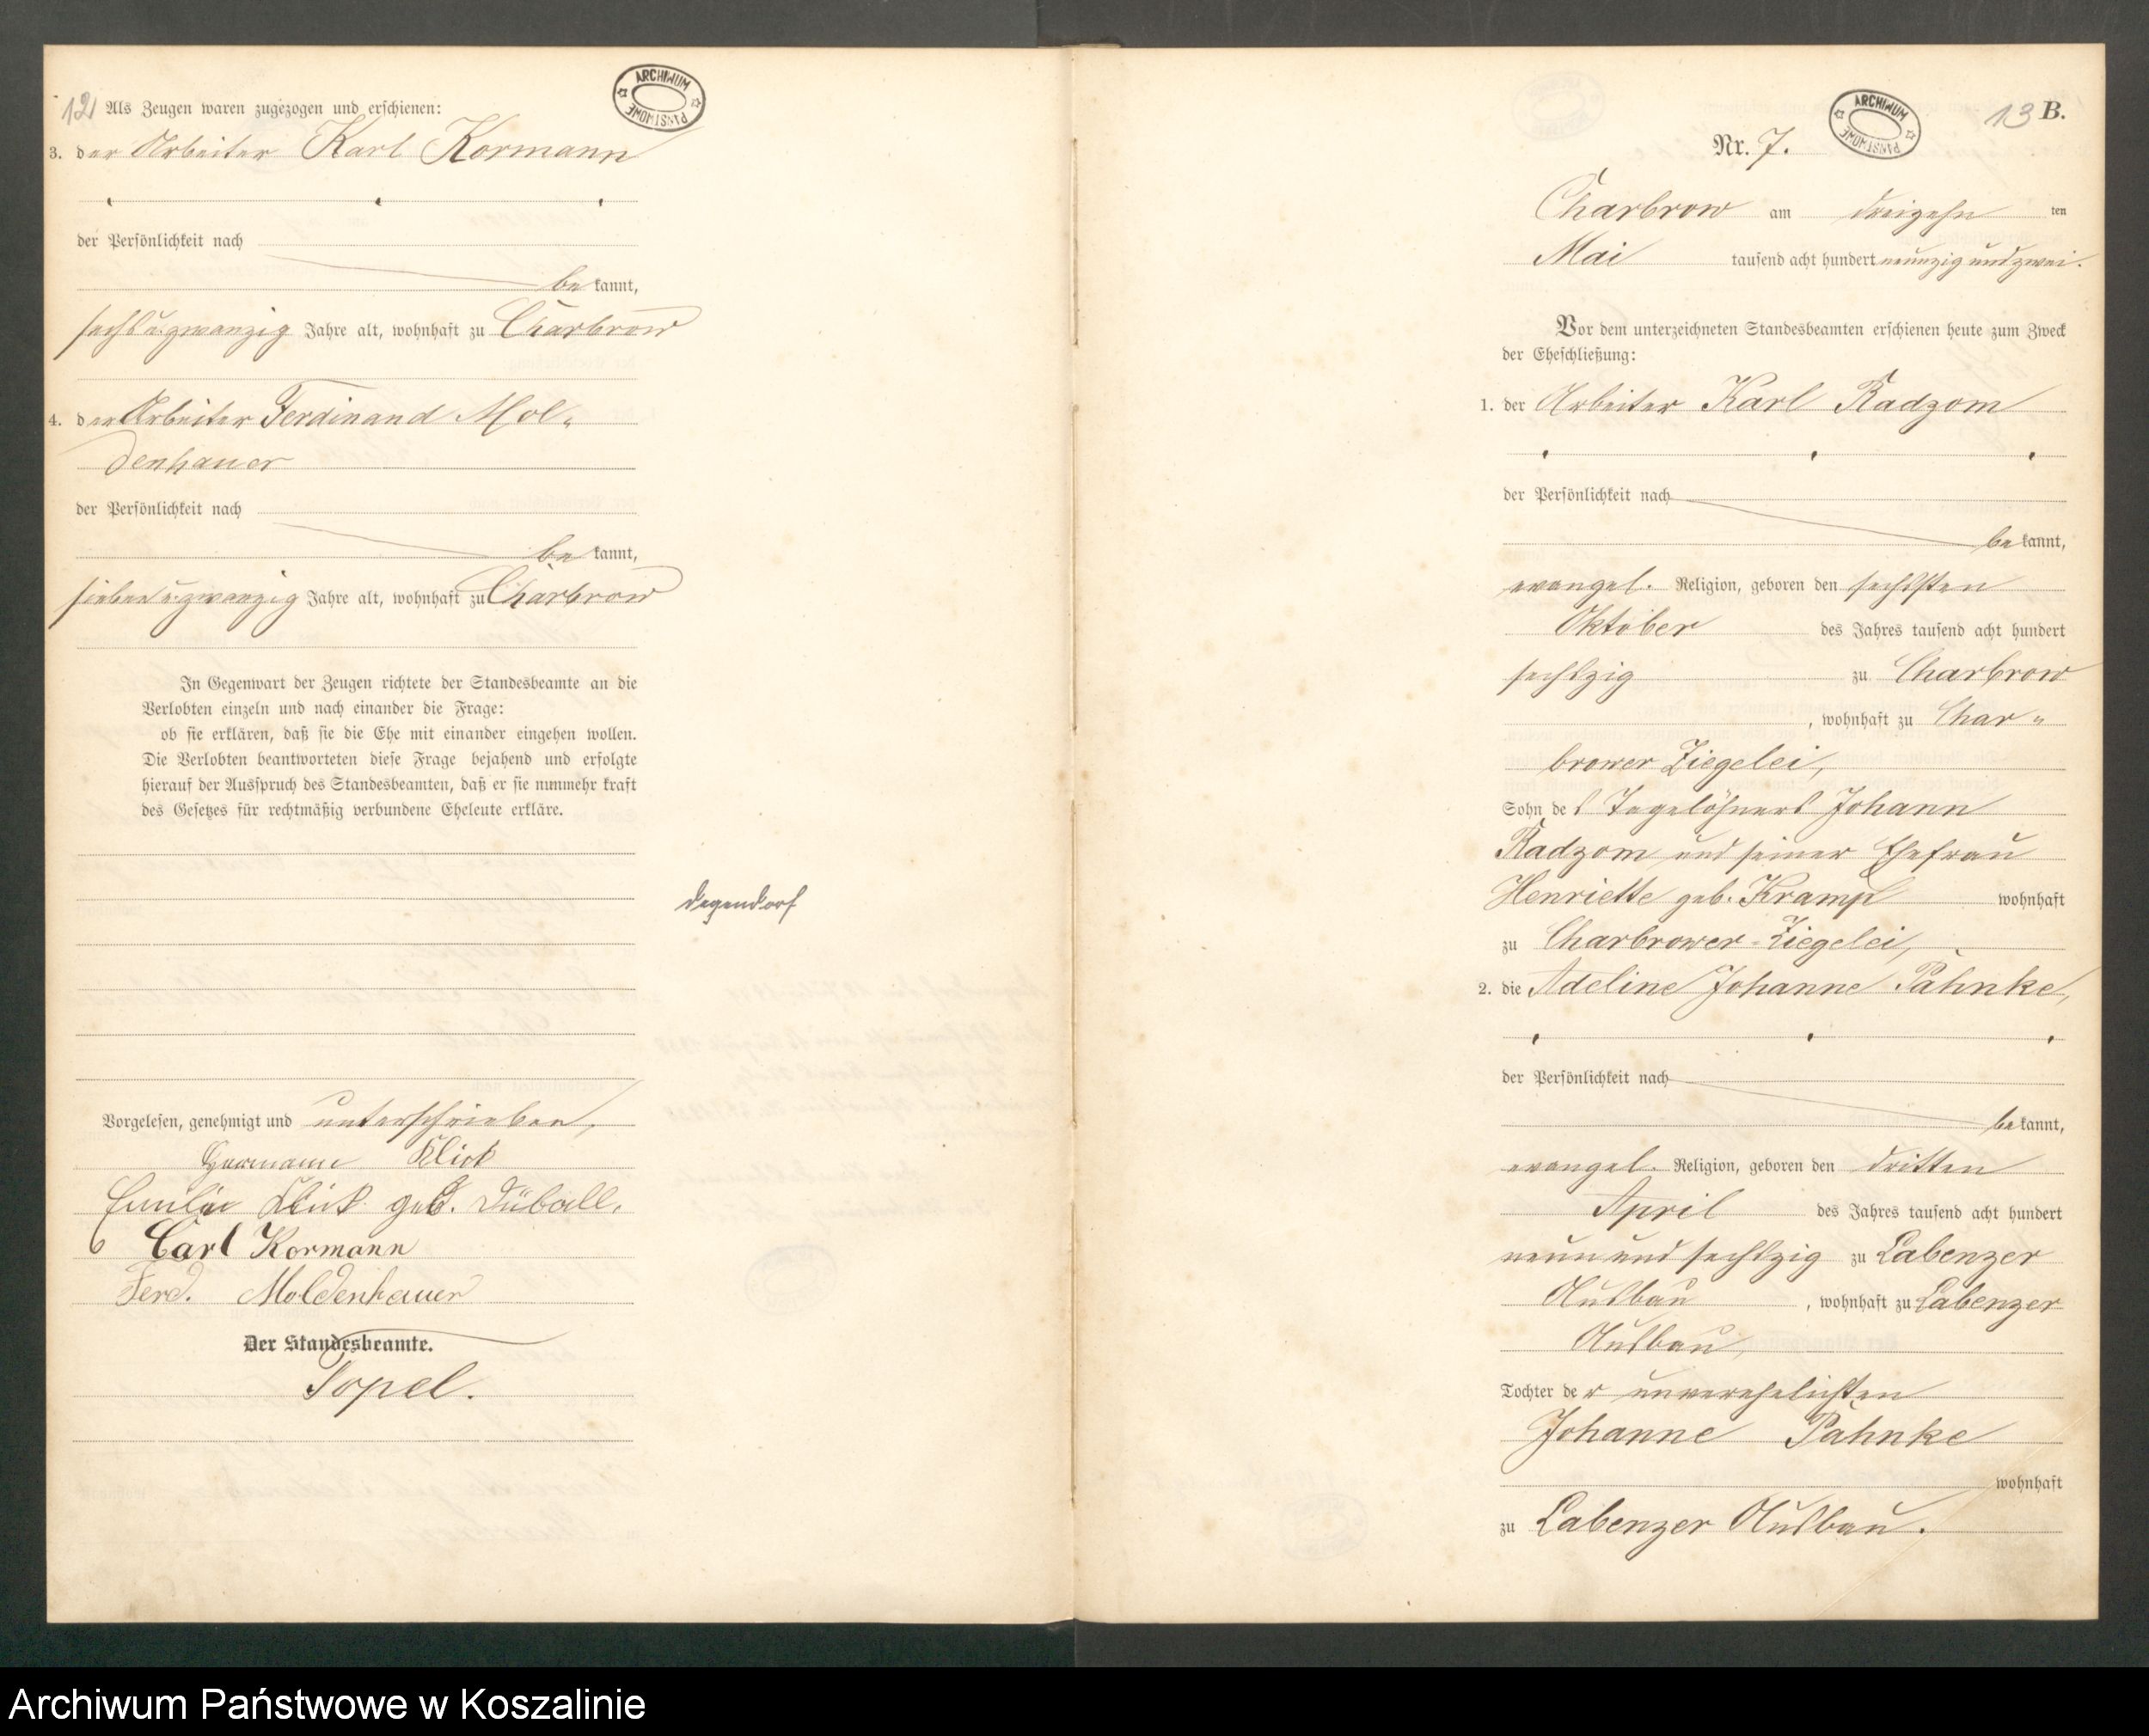 12
ARCHIWUM PAŃSTWOWE
Als Zeugen waren zugezogen und erschienen:
3. der Arbeiter Karl Kormann
der Persönlichkeit nach
be kannt,
sechs u. zwanzig Jahre alt, wohnhaft zu Charbrow
4. der Arbeiter Ferdinand Mol-
denhauer
der Persönlichkeit nach
be kannt,
sieben u. zwanzig Jahre alt, wohnhaft zu Charbrow
In Gegenwart der Zeugen richtete der Standesbeamte an die
Verlobten einzeln und nach einander die Frage:
ob sie erklären, daß sie die Ehe mit einander eingehen wollen.
Die Verlobten beantworteten diese Frage bejahend und erfolgte
hierauf der Ausspruch des Standesbeamten, daß er sie nunmehr kraft
des Gesetzes für rechtmäßig verbundene Eheleute erkläre.
Degendorf
Vorgelesen, genehmigt und unterschrieben,
Hermann Klick
Emilie Klick geb. Düball.
Carl Kormann
Ferd. Moldenhauer
Der Standesbeamte.
Topel.
13 B.
ARCHIWUM PAŃSTWOWE
Nr. 7.
Charbrow am dreizehn ten
Mai tausend acht hundert neunzig und zwei.
Vor dem unterzeichneten Standesbeamten erschienen heute zum Zweck
der Eheschließung:
1. der Arbeiter Karl Radzom
der Persönlichkeit nach
be kannt,
evangel. Religion, geboren den sechsten
Oktober des Jahres tausend acht hundert
sechszig zu Charbrow
, wohnhaft zu Char-
brower Ziegelei,
Sohn des Tagelöhners Johann
Radzom und seiner Ehefrau
Henriette geb. Kramp wohnhaft
zu Charbrower-Ziegelei,
2. die Adeline Johanne Pahnke,
der Persönlichkeit nach
be kannt,
evangel. Religion, geboren den dritten
April des Jahres tausend acht hundert
neun und sechszig zu Labenzer
Ausbau , wohnhaft zu Labenzer
Ausbau,
Tochter der unverehelichten
Johanne Pahnke
wohnhaft
zu Labenzer Ausbau.
Archiwum Państwowe w Koszalinie